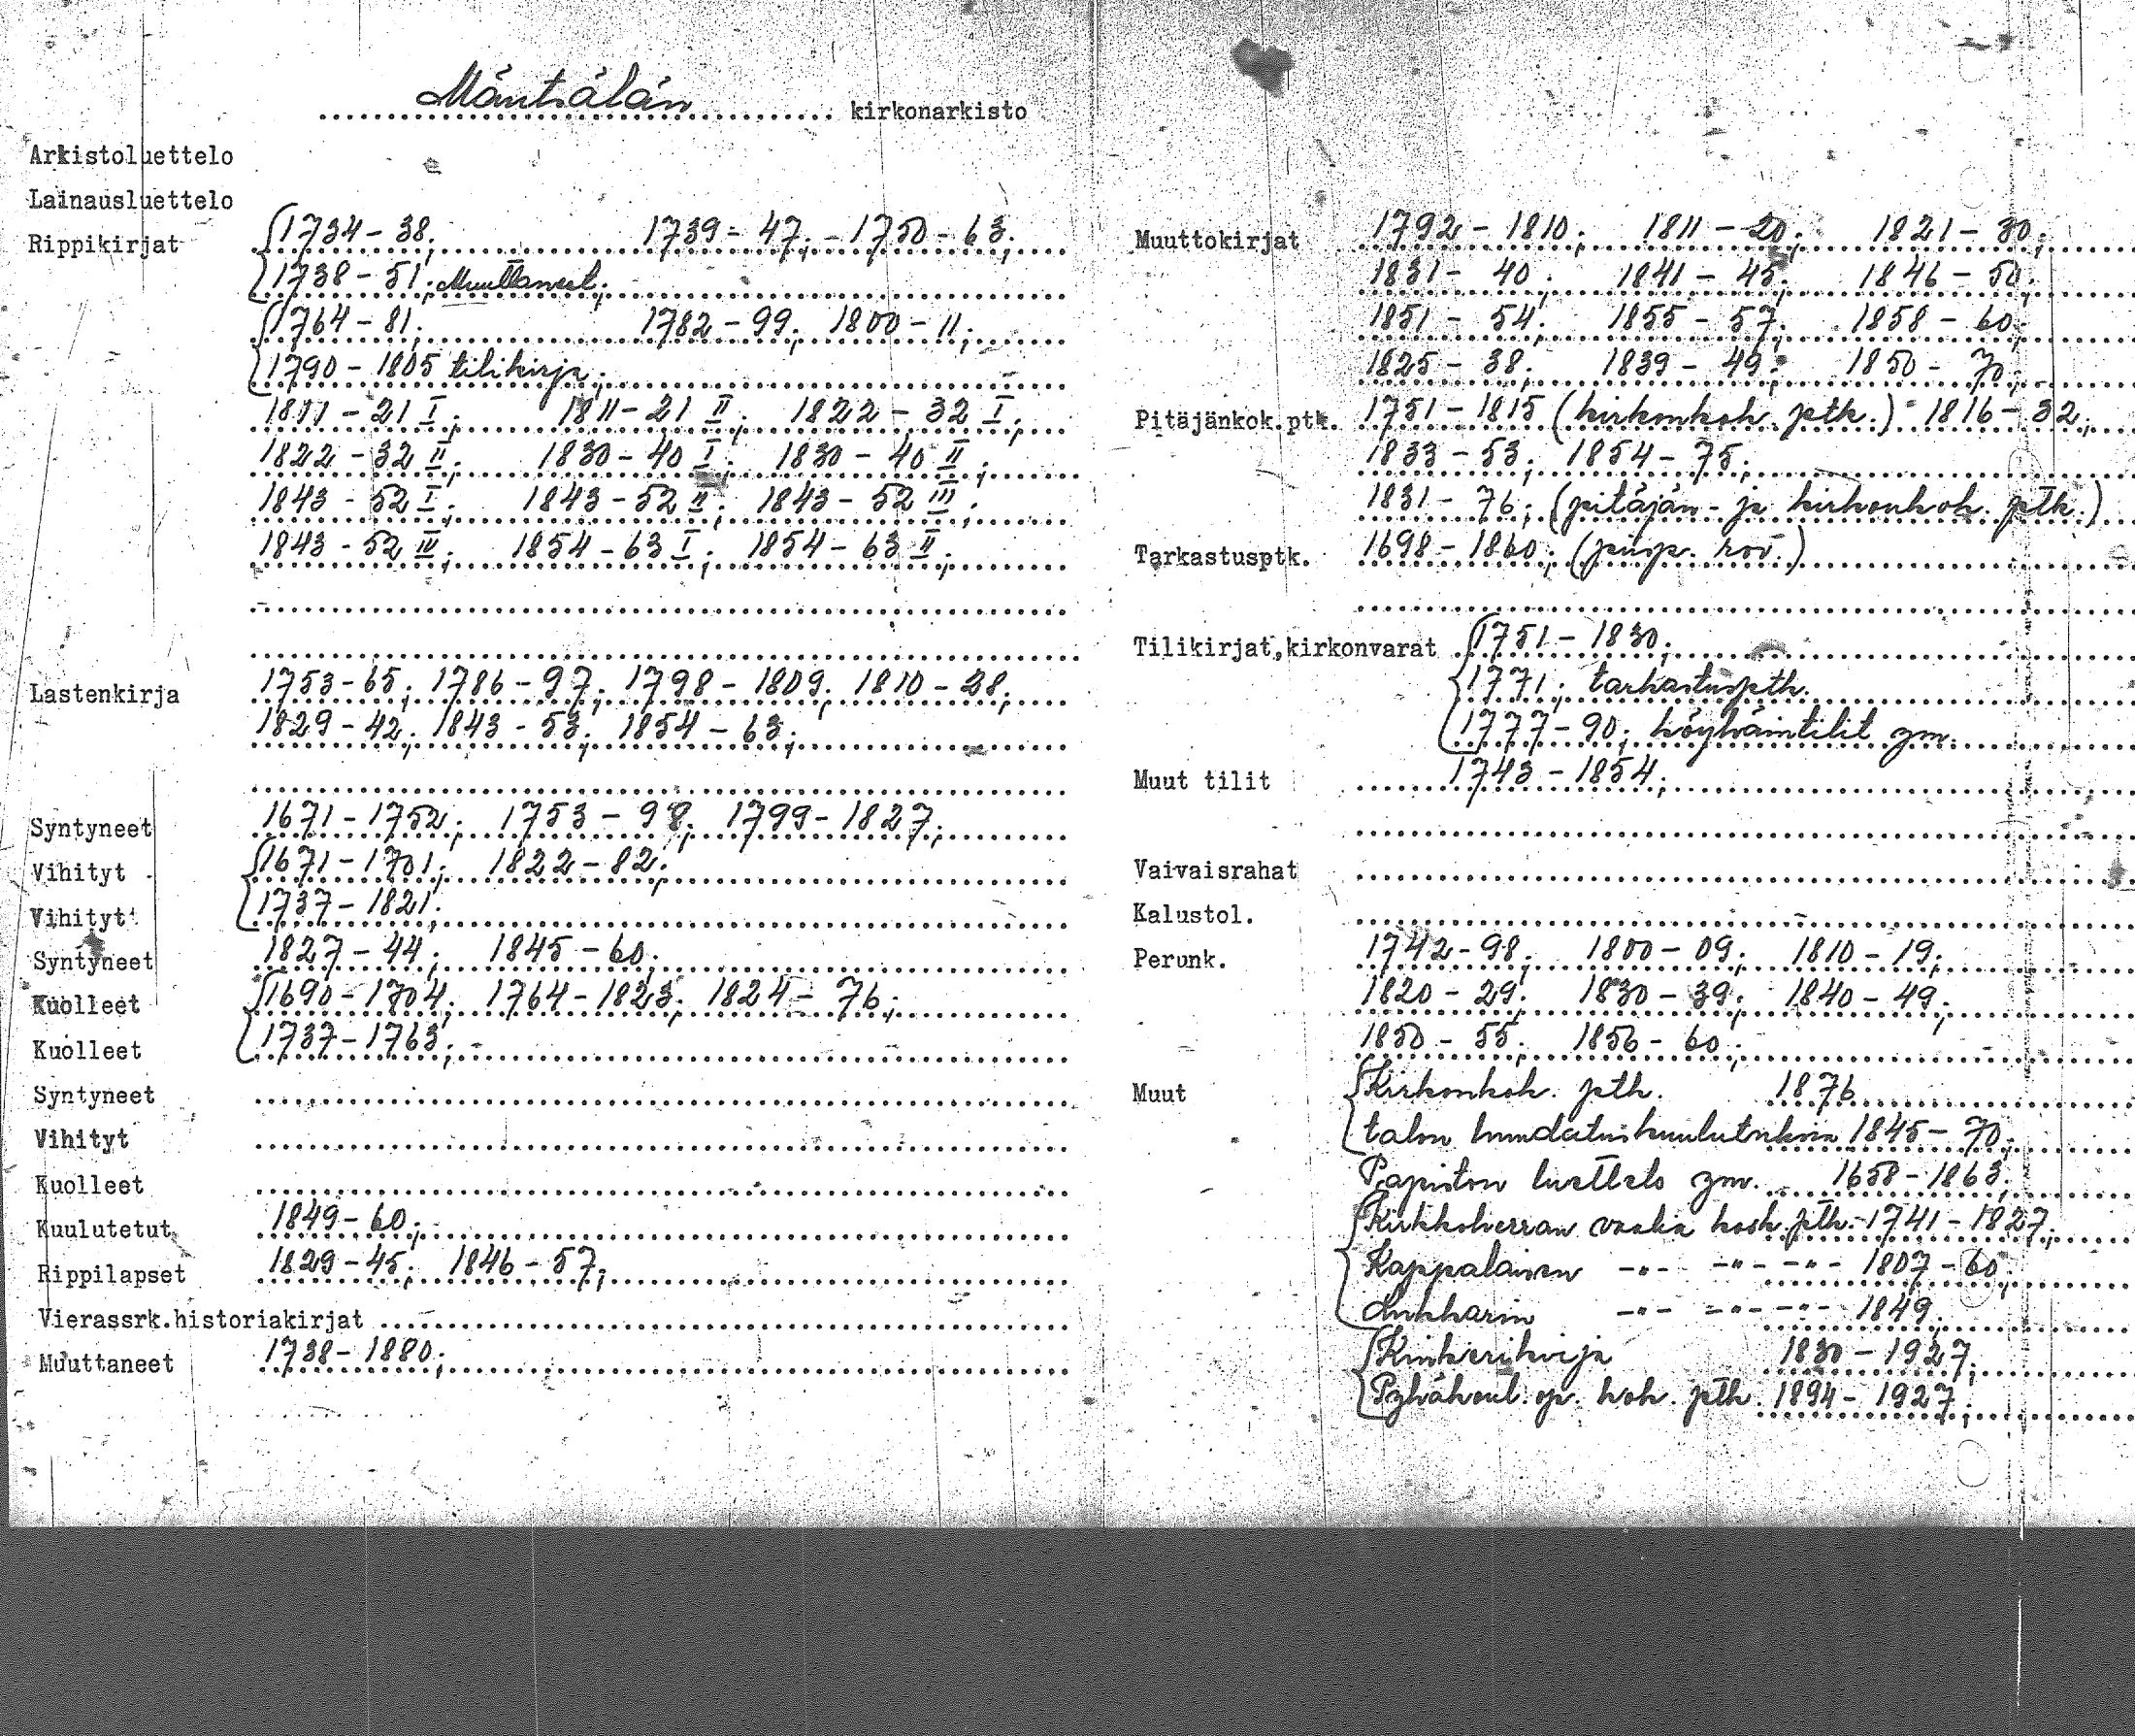 Mäntsälän kirkonarkisto
Arkistoluettelo
Lainausluettelo
Rippikirjat 1734-38; 1739-47; 1750-63;
1738-51; Muuttaneet;
1764-81; 1782-99; 1800-11;
1790-1805 tilikirja;
1811-21 I; 1811-21 II; 1822-32 I;
1822-32 II; 1830-40 I; 1830-40 II;
1843-52 I; 1843-52 II; 1843-52 III;
1843-52 III; 1854-63 I; 1854-63 II;
Lastenkirja 1753-65; 1786-97; 1798-1809; 1810-28;
1829-42; 1843-53; 1854-63;
Syntyneet 1671-1752; 1753-98; 1799-1827;
Vihityt 1671-1701; 1822-82;
Vihityt 1737-1821;
Syntyneet 1827-44; 1845-60;
Kuolleet 1690-1704; 1764-1823; 1824-76;
Kuolleet 1737-1763;
Syntyneet
Vihityt
Kuolleet
Kuulutetut 1849-60;
Rippilapset 1829-45; 1846-57;
Vierassrk.historiakirjat
Muuttaneet 1738-1880;
Muuttokirjat 1792-1810; 1811-20; 1821-30;
1831-40; 1841-45; 1846-50;
1851-54; 1855-57; 1858-60;
1825-38; 1839-49; 1850-70;
Pitäjänkok.ptk. 1751-1815 (kirkonkok. ptk.) 1816-32;
1833-53; 1854-75;
1831-76; (pitäjän- ja kirkonkok. ptk.)
Tarkastusptk. 1698-1860; (piisp. rov.)
Tilikirjat,kirkonvarat 1751-1830;
1771; tarkastusptk.
1777-90; köyhäintilit ym.
Muut tilit 1743-1854;
Vaivaisrahat
Kalustol.
Perunk. 1742-98; 1800-09; 1810-19;
1820-29; 1830-39; 1840-49;
1850-55; 1856-60;
Muut Kirkonkok. ptk. 1876
talon huudatuskuulutuksia 1845-70;
Papiston luettelo ym. 1658-1863;
Kirkkoherran vaalia kosk. ptk. 1741-1827;
Kappalaisen -"- -"- -"- 1807-60;
Lukkarin -"- -"- -"- 1849;
Kinkerikirja 1830-1927;
Pyhäkoul. op. kok. ptk. 1894-1927;